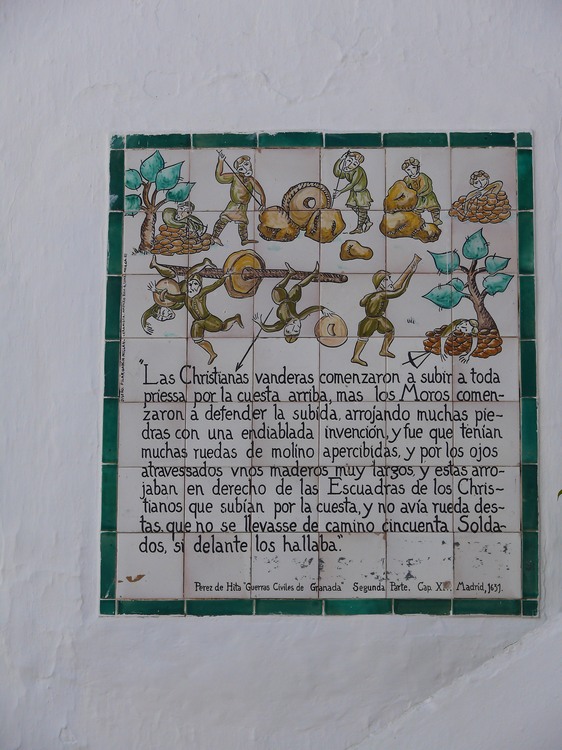 "Las Christianas vanderas comenzaron a subir a toda
priessa por la cuesta arriba, mas los Moros comen-
zaron a defender la subida, arrojando muchas pie-
dras con una endiablada invención, y fue que tenían
muchas ruedas de molino apercibidas, y por los ojos
atravessados vnos maderos muy largos, y estas arro-
jaban en derecho de las Escuadras de los Chris-
tianos que subían por la cuesta, y no avía rueda des-
tas, que no se llevasse de camino cincuenta Solda-
dos, si delante los hallaba."
Perez de Hita "Guerras Civiles de Granada" Segunda Parte. Cap. Madrid, 1631.